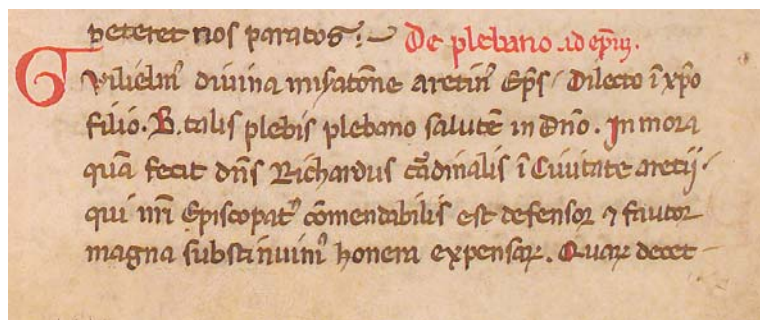 peteret nos paratos. De plebano ad epm.
Guilielm' divina misatōne aretin' Ep̄s. Dilecto ī xp̄o
filio. B. talis plebis plebano salutē in Dn̄o. In mora
quā fecit dn̄s Richardus cardinalis ī Civitate aretij.
qui nr̄i Episcopat' cōmendabilis est defensor ⁊ fautor
magna substinuim' honera expensaꝝ. Quaꝝ decet